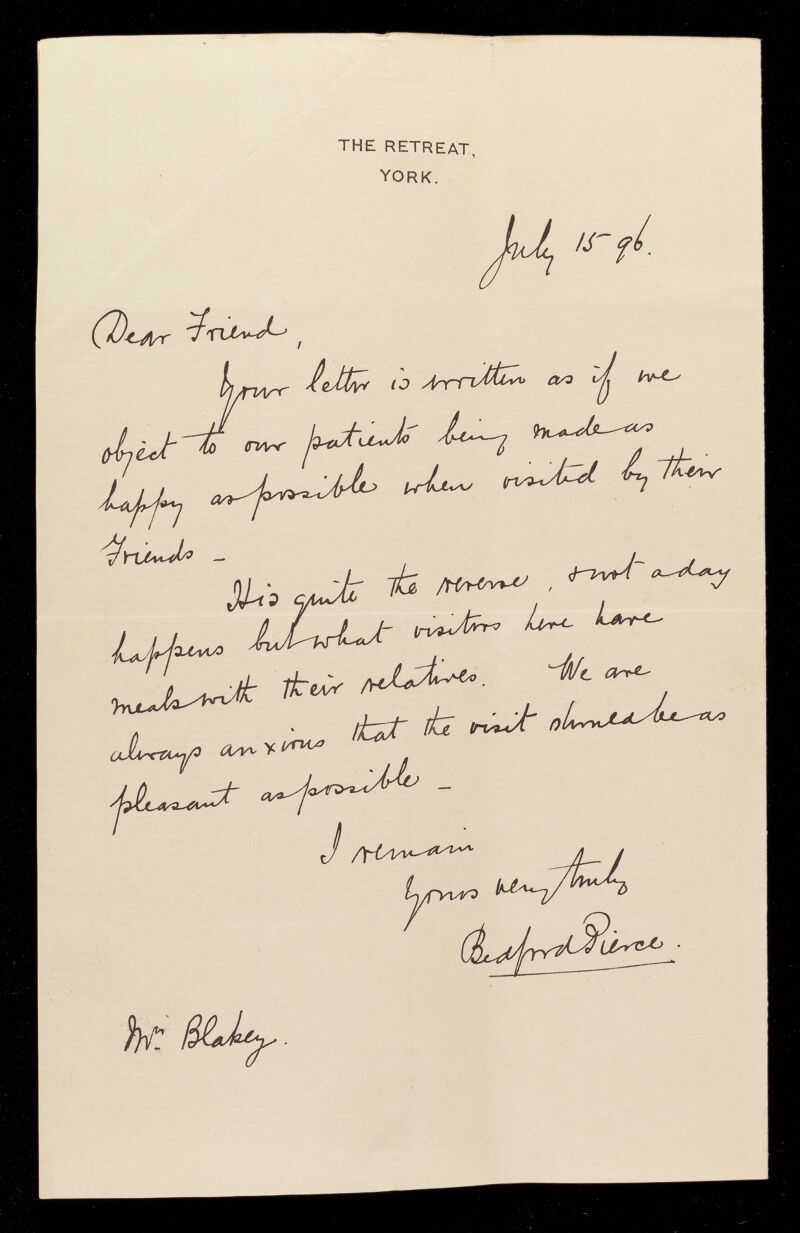 THE RETREAT,
YORK.
July 15 96.
Dear Friend,
Your letter is written as if we
object to our patients being made as
happy as possible when visited by their
Friends –
It is quite the reverse, & not a day
happens but what visitors here have
meals with their relatives. We are
always anxious that the visit should be as
pleasant as possible –
I remain
Yours very truly
Bedford Pierce.
Blakey.